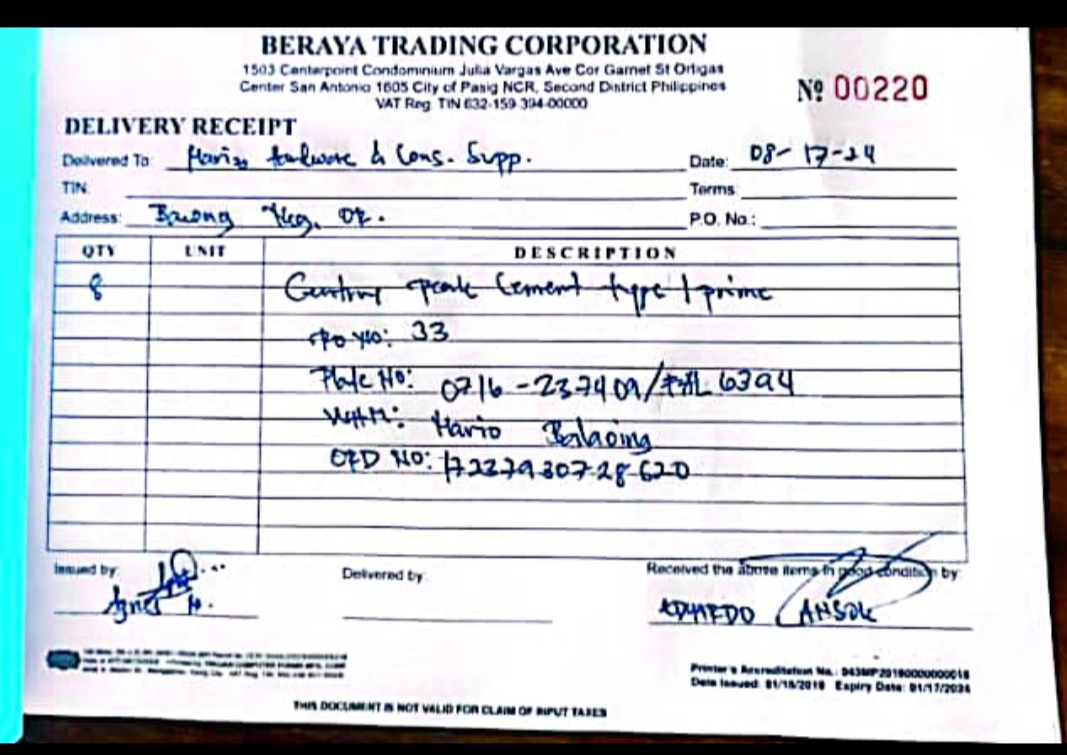 BERAYA TRADING CORPORATION
1503 Centerpoint Condominium Julia Vargas Ave Cor Garnet St Ortigas
Center San Antonio 1605 City of Pasig NCR, Second District Philippines
VAT Reg. TIN 632-159-394-00000
Nº 00220
DELIVERY RECEIPT
Delivered To: & Cons. Supp.
Date: 08-17-24
TIN:
Terms:
Address: Neg. Or.
P.O. No.:
QTY UNIT DESCRIPTION
8 Cement type 1 prime
33
Plate No: 0716-237409/ 6394
Mario Balaoing
No: 17237930728620
Issued by:
Delivered by:
Received the above items in good condition by:
Agnes
EDUARDO ANSOK
Printer's Accreditation No.: 043MP20180000000018
Date Issued: 01/18/2018 Expiry Date: 01/17/2024
THIS DOCUMENT IS NOT VALID FOR CLAIM OF INPUT TAXES